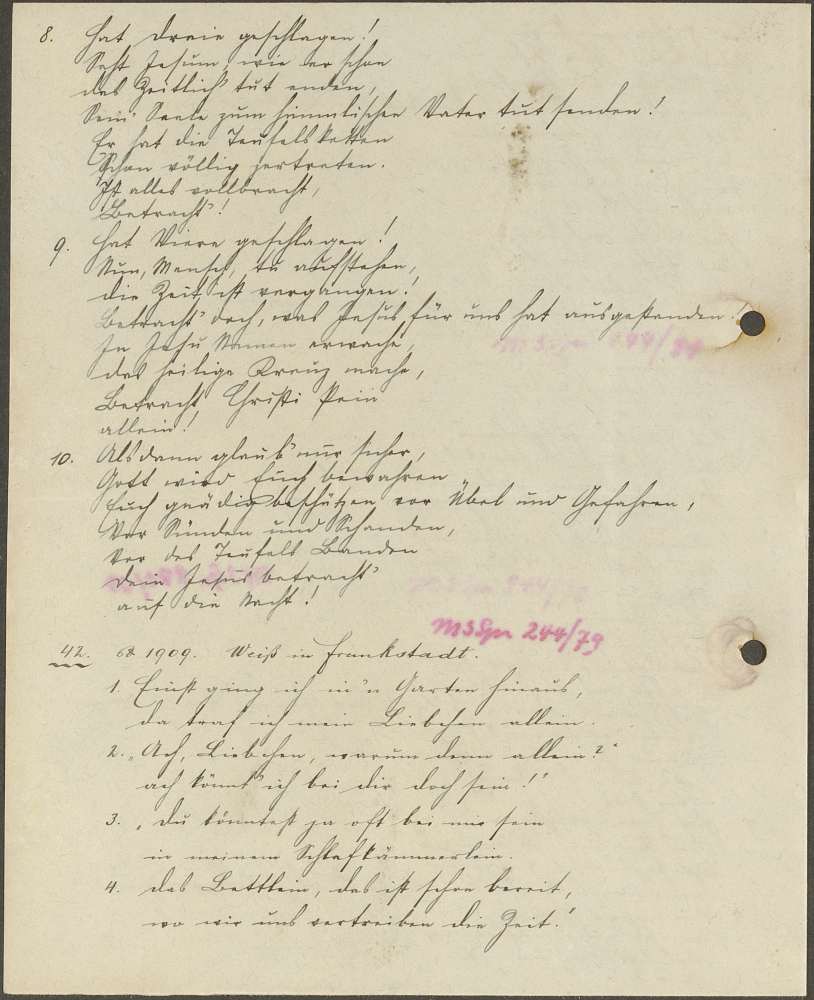 8. Hat Dreie geschlagen!
Seht Jesum, wie er schon
das Zeitlich' tut enden,
Sein' Seele zum himmlischen Vater tut senden!
Er hat die Teufelsketten
Schon völlig zertreten.
Ist alles vollbracht,
Betracht'!
9. Hat Viere geschlagen!
Nun, Mensch, tu aufstehen,
die Zeit ist vergangen!
Betracht' doch, was Jesus für uns hat ausgestanden!
In Jesu Namen erwache,
das heilige Kreuz mache,
Betracht' Christi Pein
allein!
10. Alsdann glaub' nur sicher,
Gott wird Euch bewahren
Euch gnädig beschützen vor Übel und Gefahren,
Vor Sünden und Schanden,
vor des Teufels Banden
Dein Jesus betracht'
auf die Nacht!
MSgn 244/79
42. 1909. Weiß in Frankstadt.
1. Einst ging ich in'n Garten hinaus,
da traf ich mein Liebchen allein.
2. „Ach, Liebchen, warum denn allein?"
ach könnt' ich bei dir doch sein!"
3. „Du könntest ja oft bei mir sein
in meinem Schlafkämmerlein.
4. das Bettlein, das ist schon bereit,
wo wir uns vertreiben die Zeit."